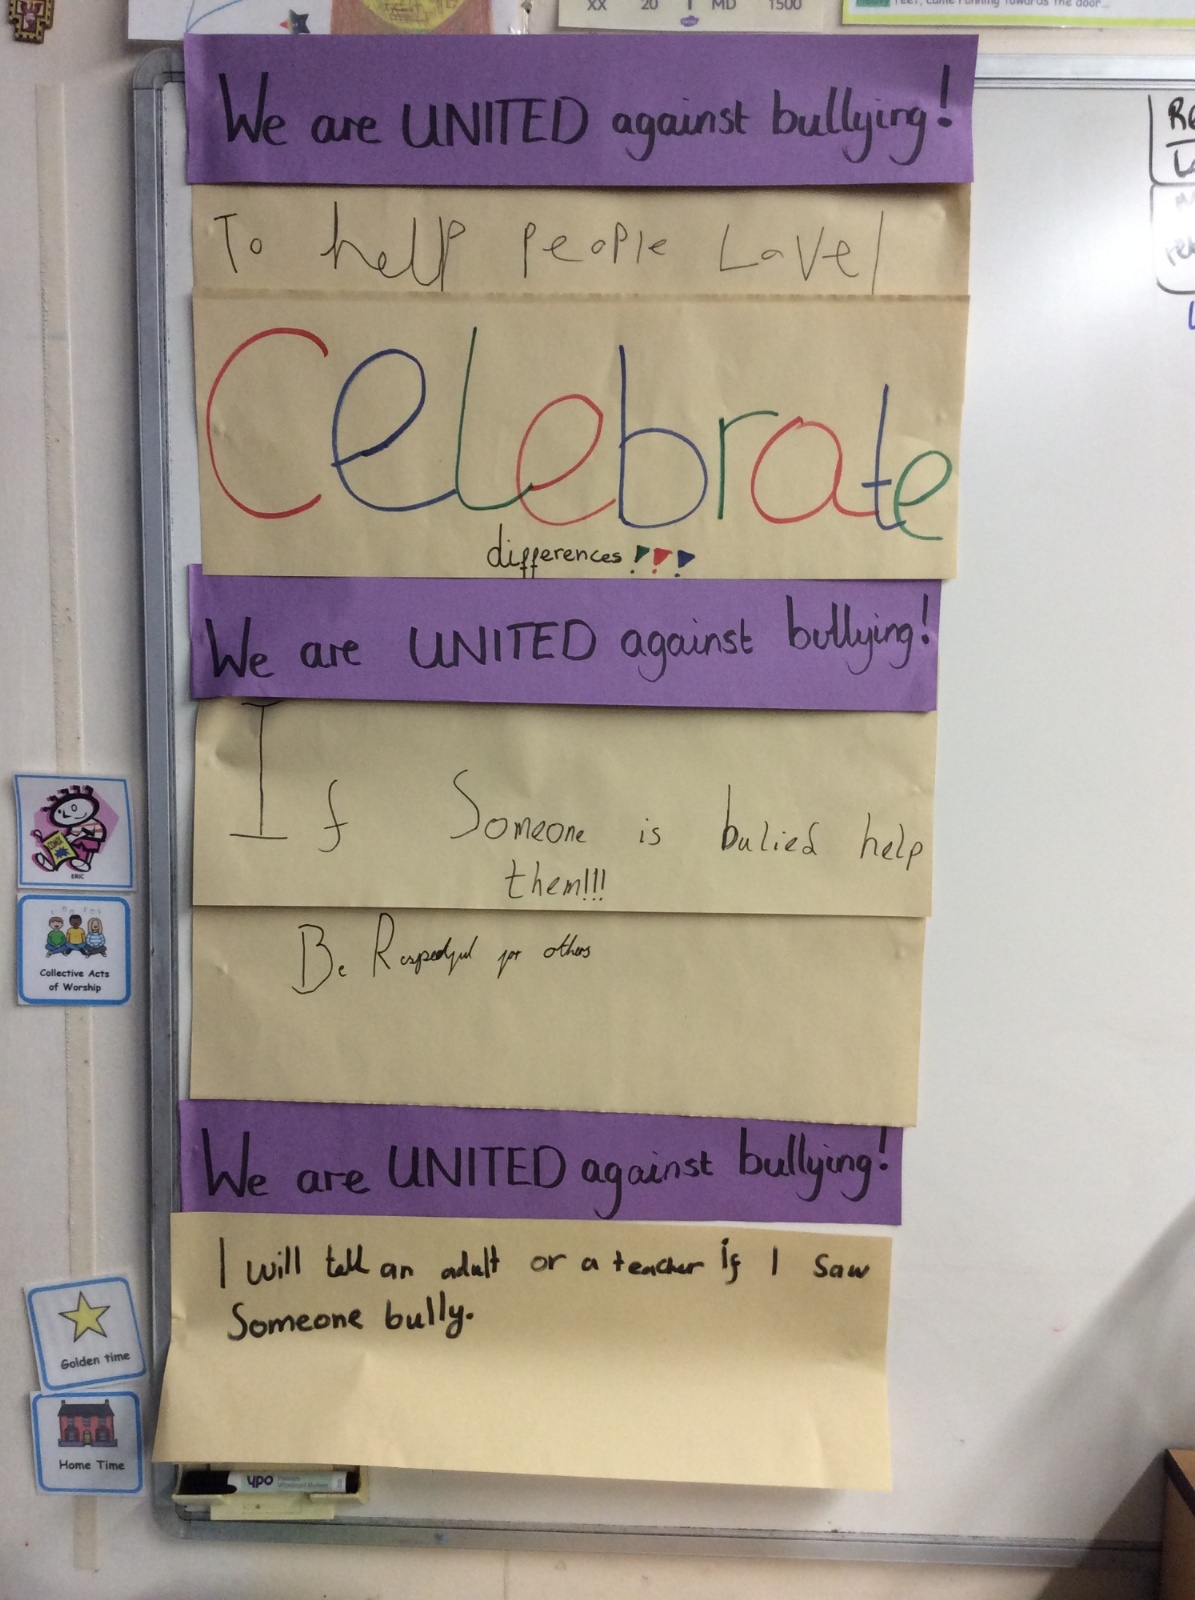 XX 20 MD 1500
FEET, come running towards the door...
We are UNITED against bullying!
To help People LaVel
Celebrate
differences !!!
We are UNITED against bullying!
If Someone is bulied help
them!!!
Be Respectful for others
We are UNITED against bullying!
I will tell an adult or a teacher if I saw
Someone bully.
ERIC
Collective Acts
of Worship
Golden time
Home Time
ypo